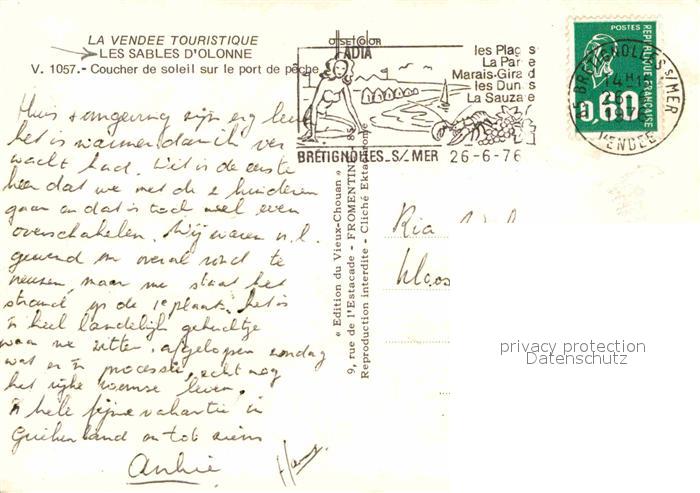 LA VENDEE TOURISTIQUE
LES SABLES D'OLONNE
V. 1057.- Coucher de soleil sur le port de pêche
les Plages
La Parée
Marais-Girard
les Dunes
La Sauzaie
BRETIGNOLLES-S/-MER 26-6-76
POSTES
REPUBLIQUE FRANÇAISE
0,60
BRETIGNOLLES S/MER
VENDEE
Huis & omgeving zijn erg leuk
het is warmer dan ik ver
wacht had. Dit is de eerste
keer dat we met de 2 kinderen
gaan en dat is toch wel even
overschakelen. Wij waren n.l.
gewend om overal rond te
neuzen, maar nu staat het
strand op de 1e plaats. het is
'n heel landelijk gehuchtje
waar we zitten. afgelopen zondag
was er 'n processie, echt nog
het rijke roomse leven.
'n hele fijne vakantie in
Griekenland en tot ziens
« Edition du Vieux-Chouan »
9, rue de l'Estacade - FROMENTINE - 85
Reproduction interdite - Cliché Ektachrome
Ria
privacy protection
Datenschutz